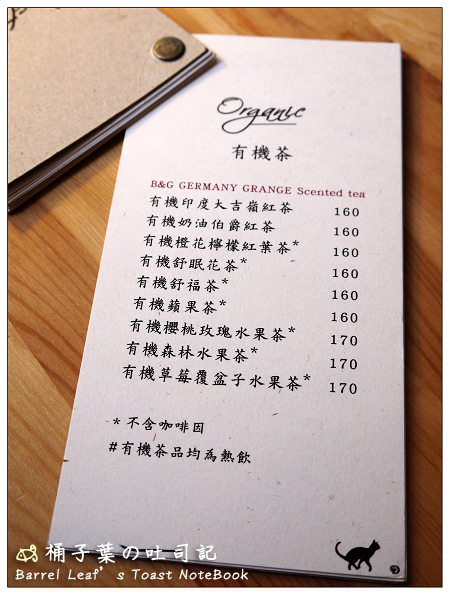 Organic
有機茶
B&G GERMANY GRANGE Scented tea
有機印度大吉嶺紅茶 160
有機奶油伯爵紅茶 160
有機橙花檸檬紅葉茶* 160
有機舒眠花茶* 160
有機舒福茶* 160
有機蘋果茶* 160
有機櫻桃玫瑰水果茶* 170
有機森林水果茶* 170
有機草莓覆盆子水果茶* 170
*不含咖啡因
#有機茶品均為熱飲
桶子葉の吐司記
Barrel Leaf's Toast NoteBook